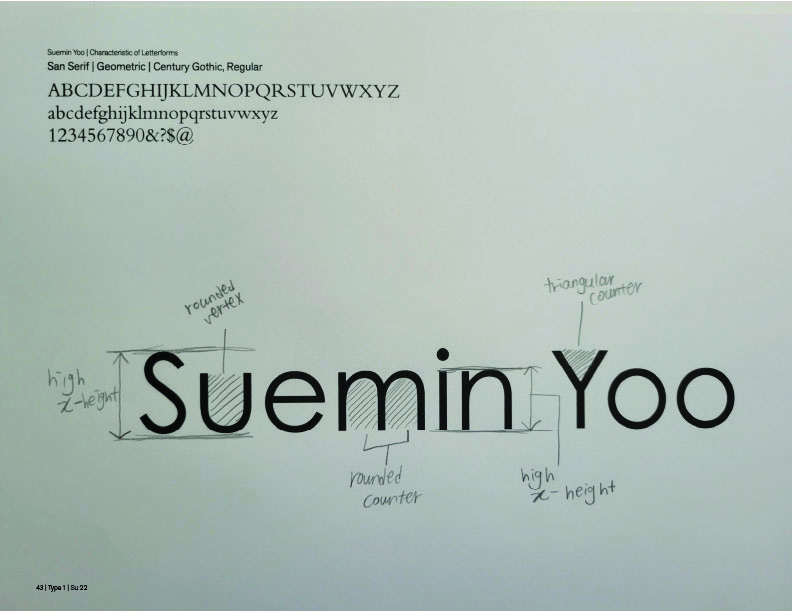 Suemin Yoo | Characteristic of Letterforms
San Serif | Geometric | Century Gothic, Regular
ABCDEFGHIJKLMNOPQRSTUVWXYZ
abcdefghijklmnopqrstuvwxyz
1234567890&?$@
rounded
vertex
triangular
counter
high
x-height
Suemin Yoo
rounded
counter
high
x-height
43 | Type 1 | Su 22